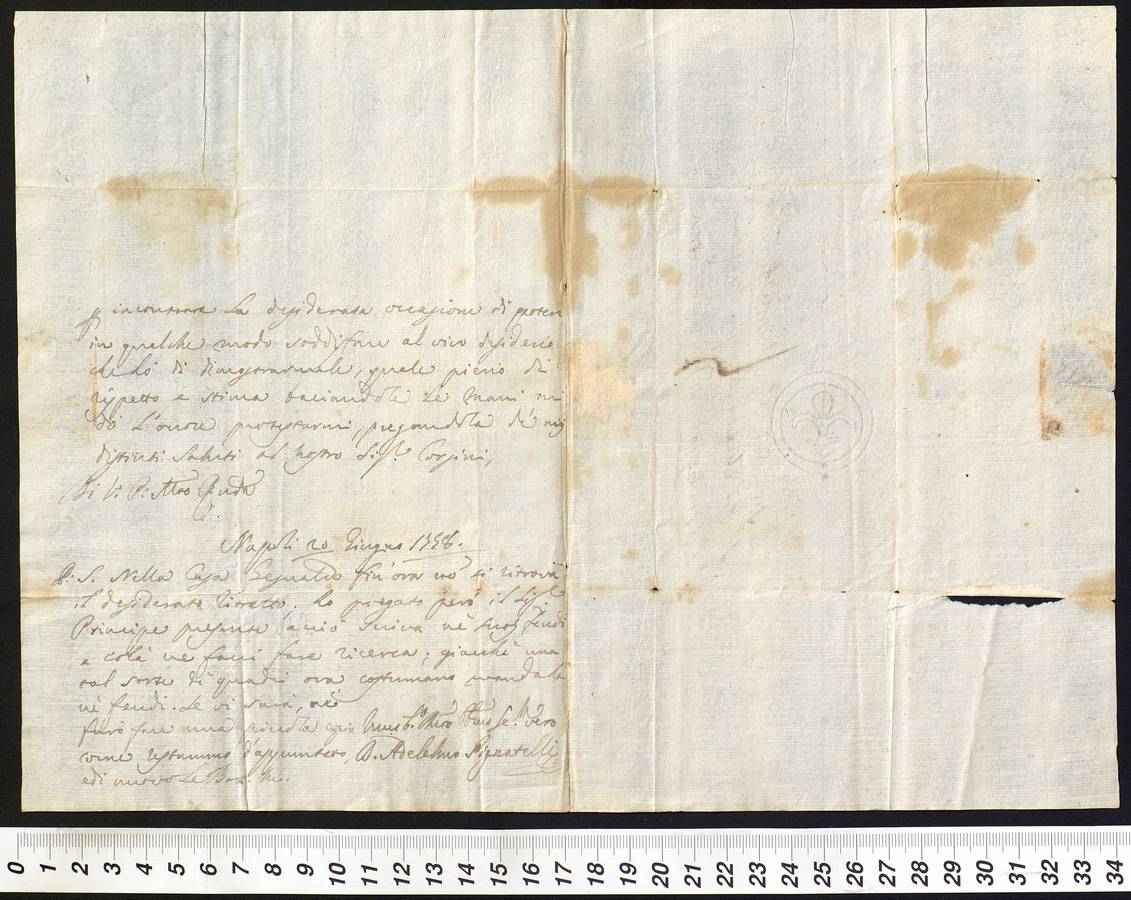 incontrare la desiderata occasione di potere
in qualche modo soddisfare al vivo desiderio
che hò di dimostrarmele, quale pieno di
rispetto e stima baciandole le Mani mi
dò l'onore protestarmi, pregandola de' miei
distinti saluti al nostro Sig.r Corsini,
Di V. P. M.to
Napoli 20 Giugno 1758.
P: S. Nella Casa Gesualdo fin'ora non si ritrova
il desiderato ritratto. ho pregato però il Sig.r
Principe presente acciò scriva ne' suoi feudi
e colà ne facci fare ricerca; giacchè una
tal sorte di quadri ora costumano mandarla
ne' feudi. Se vi sarà, ne
farò fare una picciola copia
come restammo d'appuntato, D. Adelelmo Pignatelli
e di nuovo le
0 1 2 3 4 5 6 7 8 9 10 11 12 13 14 15 16 17 18 19 20 21 22 23 24 25 26 27 28 29 30 31 32 33 34